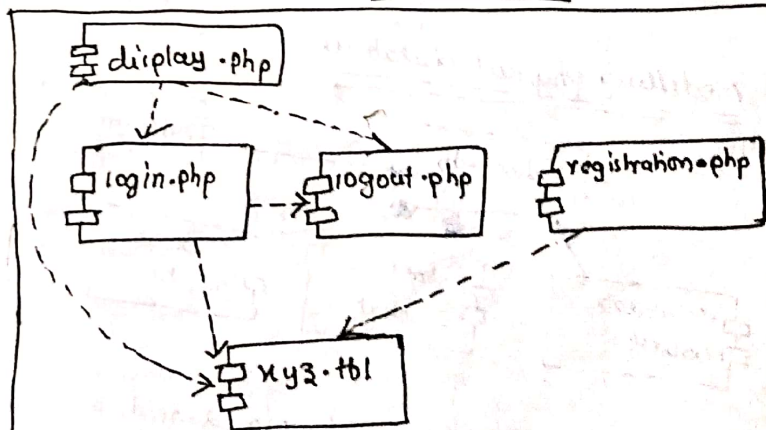 display.php
login.php
logout.php
registration.php
xyz.tbl